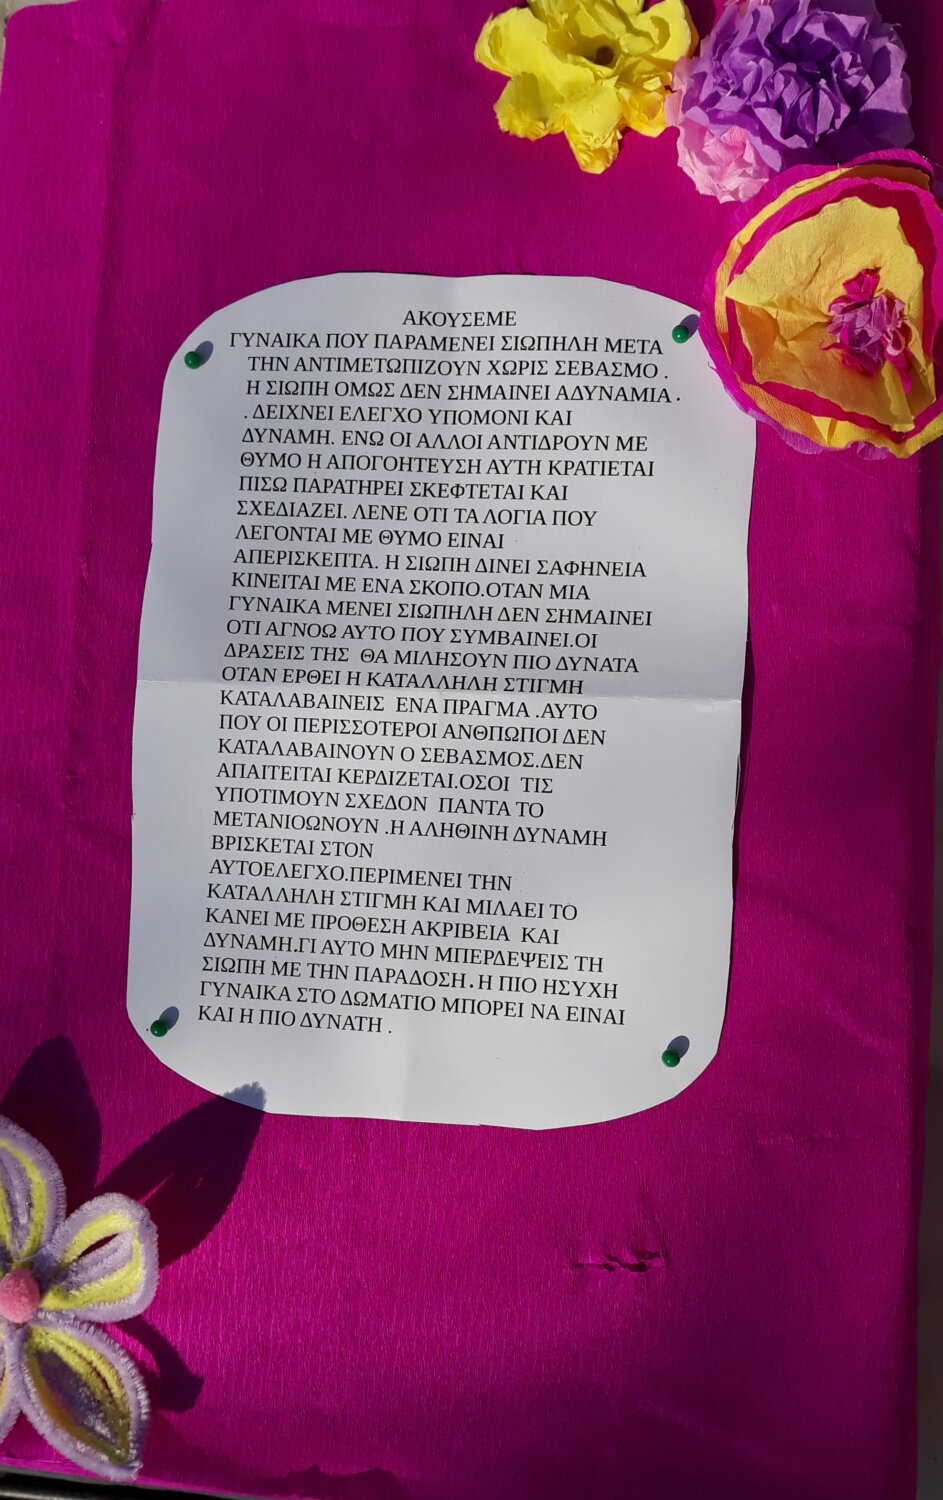 ΑΚΟΥΣΕΜΕ
ΓΥΝΑΙΚΑ ΠΟΥ ΠΑΡΑΜΕΝΕΙ ΣΙΩΠΗΛΗ ΜΕΤΑ
ΤΗΝ ΑΝΤΙΜΕΤΩΠΙΖΟΥΝ ΧΩΡΙΣ ΣΕΒΑΣΜΟ .
Η ΣΙΩΠΗ ΟΜΩΣ ΔΕΝ ΣΗΜΑΙΝΕΙ ΑΔΥΝΑΜΙΑ .
. ΔΕΙΧΝΕΙ ΕΛΕΓΧΟ ΥΠΟΜΟΝΙ ΚΑΙ
ΔΥΝΑΜΗ. ΕΝΩ ΟΙ ΑΛΛΟΙ ΑΝΤΙΔΡΟΥΝ ΜΕ
ΘΥΜΟ Η ΑΠΟΓΟΗΤΕΥΣΗ ΑΥΤΗ ΚΡΑΤΙΕΤΑΙ
ΠΙΣΩ ΠΑΡΑΤΗΡΕΙ ΣΚΕΦΤΕΤΑΙ ΚΑΙ
ΣΧΕΔΙΑΖΕΙ. ΛΕΝΕ ΟΤΙ ΤΑ ΛΟΓΙΑ ΠΟΥ
ΛΕΓΟΝΤΑΙ ΜΕ ΘΥΜΟ ΕΙΝΑΙ
ΑΠΕΡΙΣΚΕΠΤΑ. Η ΣΙΩΠΗ ΔΙΝΕΙ ΣΑΦΗΝΕΙΑ
ΚΙΝΕΙΤΑΙ ΜΕ ΕΝΑ ΣΚΟΠΟ.ΟΤΑΝ ΜΙΑ
ΓΥΝΑΙΚΑ ΜΕΝΕΙ ΣΙΩΠΗΛΗ ΔΕΝ ΣΗΜΑΙΝΕΙ
ΟΤΙ ΑΓΝΟΩ ΑΥΤΟ ΠΟΥ ΣΥΜΒΑΙΝΕΙ.ΟΙ
ΔΡΑΣΕΙΣ ΤΗΣ ΘΑ ΜΙΛΗΣΟΥΝ ΠΙΟ ΔΥΝΑΤΑ
ΟΤΑΝ ΕΡΘΕΙ Η ΚΑΤΑΛΛΗΛΗ ΣΤΙΓΜΗ
ΚΑΤΑΛΑΒΑΙΝΕΙΣ ΕΝΑ ΠΡΑΓΜΑ .ΑΥΤΟ
ΠΟΥ ΟΙ ΠΕΡΙΣΣΟΤΕΡΟΙ ΑΝΘΠΩΠΟΙ ΔΕΝ
ΚΑΤΑΛΑΒΑΙΝΟΥΝ Ο ΣΕΒΑΣΜΟΣ.ΔΕΝ
ΑΠΑΙΤΕΙΤΑΙ ΚΕΡΔΙΖΕΤΑΙ.ΟΣΟΙ ΤΙΣ
ΥΠΟΤΙΜΟΥΝ ΣΧΕΔΟΝ ΠΑΝΤΑ ΤΟ
ΜΕΤΑΝΙΟΩΝΟΥΝ .Η ΑΛΗΘΙΝΗ ΔΥΝΑΜΗ
ΒΡΙΣΚΕΤΑΙ ΣΤΟΝ
ΑΥΤΟΕΛΕΓΧΟ.ΠΕΡΙΜΕΝΕΙ ΤΗΝ
ΚΑΤΑΛΛΗΛΗ ΣΤΙΓΜΗ ΚΑΙ ΜΙΛΑΕΙ ΤΟ
ΚΑΝΕΙ ΜΕ ΠΡΟΘΕΣΗ ΑΚΡΙΒΕΙΑ ΚΑΙ
ΔΥΝΑΜΗ.ΓΙ ΑΥΤΟ ΜΗΝ ΜΠΕΡΔΕΨΕΙΣ ΤΗ
ΣΙΩΠΗ ΜΕ ΤΗΝ ΠΑΡΑΔΟΣΗ.Η ΠΙΟ ΗΣΥΧΗ
ΓΥΝΑΙΚΑ ΣΤΟ ΔΩΜΑΤΙΟ ΜΠΟΡΕΙ ΝΑ ΕΙΝΑΙ
ΚΑΙ Η ΠΙΟ ΔΥΝΑΤΗ .